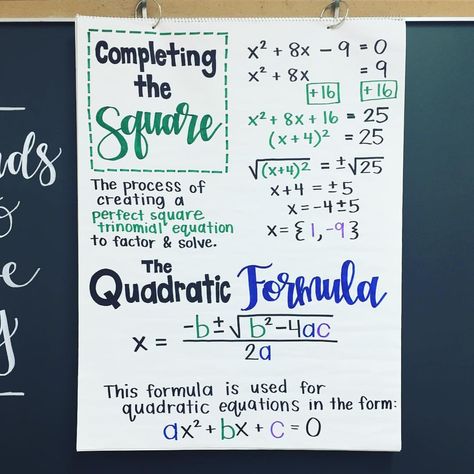 Completing
the
Square
The process of
creating a
perfect square
trinomial equation
to factor & solve.
x² + 8x − 9 = 0
x² + 8x = 9
+16 +16
x² + 8x + 16 = 25
(x+4)² = 25
√(x+4)² = ±√25
x+4 = ±5
x = -4±5
x = {1,-9}
The
Quadratic Formula
x = -b±√b²-4ac
2a
This formula is used for
quadratic equations in the form:
ax² + bx + c = 0